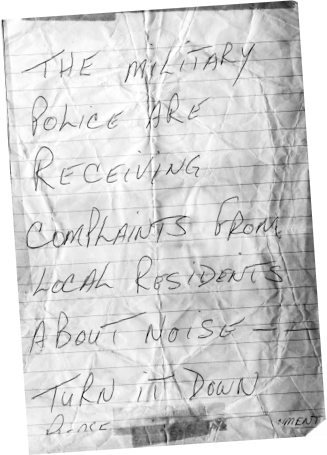 THE MILITARY
POLICE ARE
RECEIVING
COMPLAINTS FROM
LOCAL RESIDENTS
ABOUT NOISE ——
TURN IT DOWN